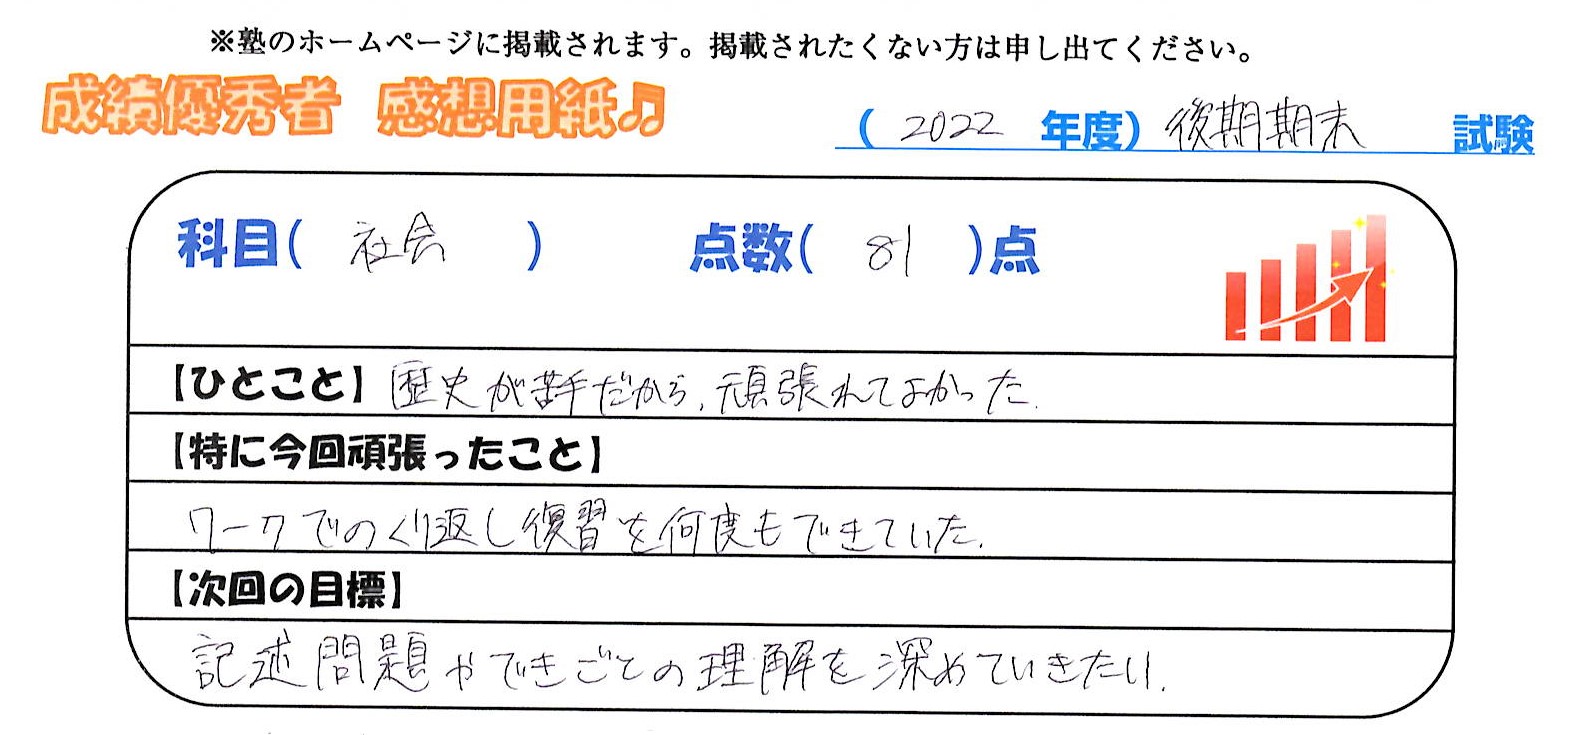 ※塾のホームページに掲載されます。掲載されたくない方は申し出てください。
成績優秀者 感想用紙♫
( 2022 年度) 後期期末 試験
科目( 社会 ) 点数( 81 )点
【ひとこと】歴史が苦手だから、頑張れてよかった.
【特に今回頑張ったこと】
ワークでのくり返し復習を何度もできていた.
【次回の目標】
記述問題やできごとの理解を深めていきたい.